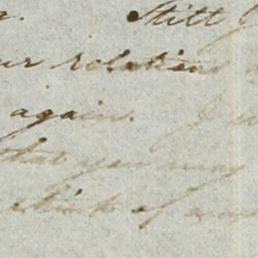 Still
our relations
again.
that you may
think of